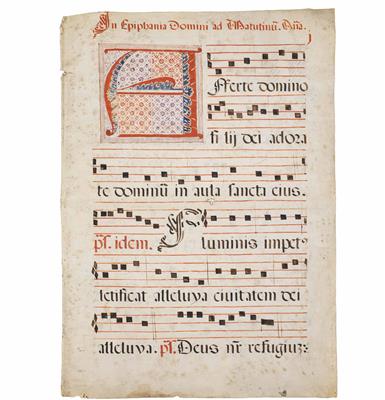 In Epiphania Domini ad Matutinū. Aña.
Afferte domino
fi lij dei adora
te dominū in aula sancta eius.
ps. idem. Fluminis impet⁹
letificat alleluya ciuitatem dei
alleluya. ps. Deus nr̄ refugiuz: